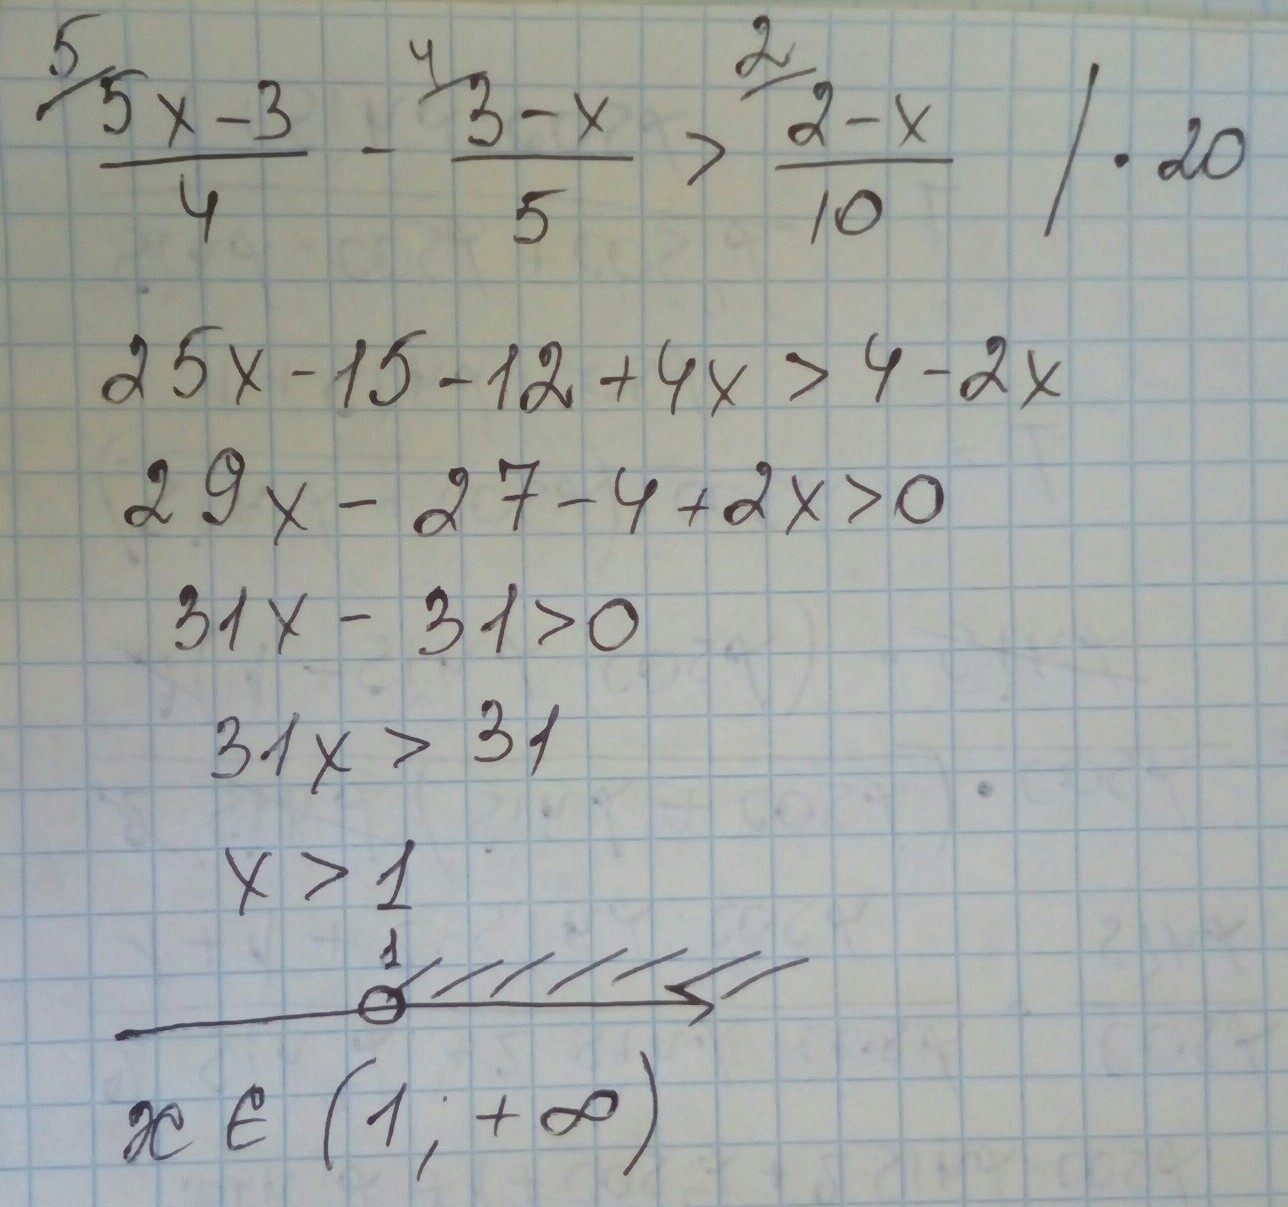 5/ 4/ 2/
5x-3 / 4 - 3-x / 5 > 2-x / 10 / · 20
25x-15-12+4x>4-2x
29x-27-4+2x>0
31x-31>0
31x>31
x>1
1
x∈(1;+∞)